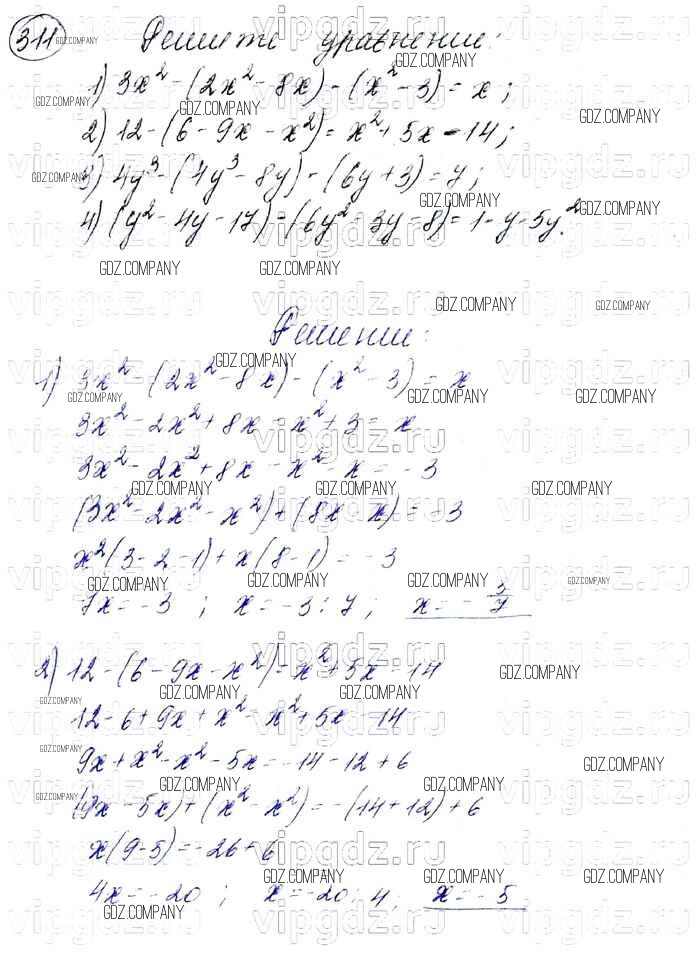 311 Решите уравнение:
1) 3x² - (2x² - 8x) - (x² - 3) = x;
2) 12 - (6 - 9x - x²) = x² + 5x - 14;
3) 4y³ - (4y³ - 8y) - (6y + 3) = 7;
4) (y² - 4y - 17) - (6y² - 3y - 8) = 1 - y - 5y².
Решение:
1) 3x² - (2x² - 8x) - (x² - 3) = x
3x² - 2x² + 8x - x² + 3 = x
3x² - 2x² + 8x - x² - x = -3
(3x² - 2x² - x²) + (8x - x) = -3
x²(3 - 2 - 1) + x(8 - 1) = -3
7x = -3 ; x = -3 : 7 ; x = -3/7
2) 12 - (6 - 9x - x²) = x² + 5x - 14
12 - 6 + 9x + x² = x² + 5x - 14
9x + x² - x² - 5x = -14 - 12 + 6
(9x - 5x) + (x² - x²) = -(14 + 12) + 6
x(9 - 5) = -26 + 6
4x = -20 ; x = -20 : 4 ; x = -5